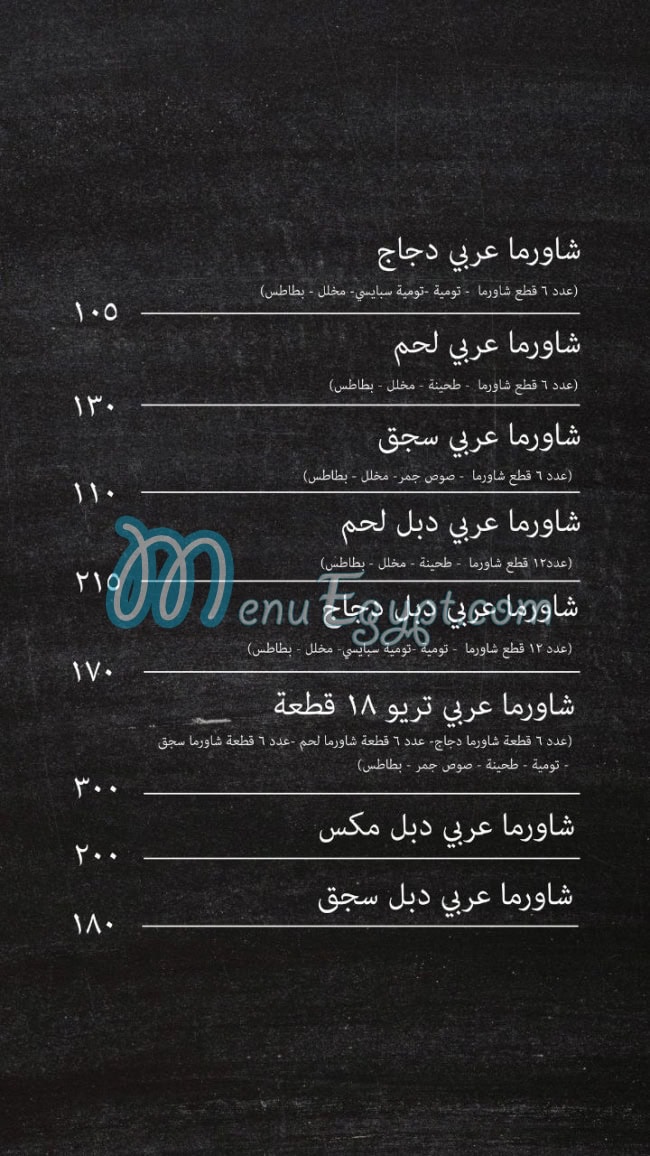 شاورما عربي دجاج
(عدد ٦ قطع شاورما - تومية -تومية سبايسي- مخلل - بطاطس)
١٠٥
شاورما عربي لحم
(عدد ٦ قطع شاورما - طحينة - مخلل - بطاطس)
١٣٠
شاورما عربي سجق
(عدد ٦ قطع شاورما - صوص جمر- مخلل - بطاطس)
١١٠
شاورما عربي دبل لحم
(عدد١٢ قطع شاورما - طحينة - مخلل - بطاطس)
٢١٥
MenuEgypt.com
شاورما عربي دبل دجاج
(عدد ١٢ قطع شاورما - تومية -تومية سبايسي- مخلل - بطاطس)
١٧٠
شاورما عربي تريو ١٨ قطعة
(عدد ٦ قطعة شاورما دجاج- عدد ٦ قطعة شاورما لحم -عدد ٦ قطعة شاورما سجق
- تومية - طحينة - صوص جمر - بطاطس)
٣٠٠
شاورما عربي دبل مكس
٢٠٠
شاورما عربي دبل سجق
١٨٠